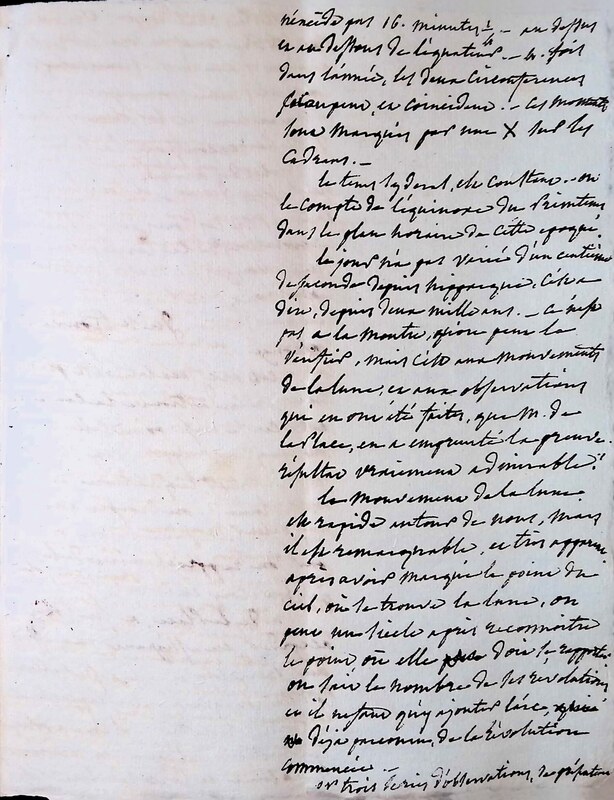 n'excède pas 16. minutes ½ – au dessus
et au dessous de l'équateur – 4. fois
dans l'année, les deux circonférences
se coupent, et coincident. – ces moments
sont marqués par une X sur les
cadrans. –
le tems syderal, est constant. – on
le compte de l'équinoxe du Printems
dans le plan horaire de cette epoque.
le jour n'a pas varié d'un centième
de seconde depuis hipparque, c'est a
dire, depuis deux mille ans. – ce n'est
pas a la montre, qu'on peut le
vérifier, mais c'est aux mouvements
de la lune, et aux observations
qui en ont été faites, que M. de
la place, en a emprunté la preuve.
résultat vraiment admirable.
le mouvement de la lune
est rapide autour de nous, mais
il est remarquable, et très apparent
après avoir marqué le point du
ciel, où se trouve la lune, on
peut un siecle après reconnoitre
le point, où elle doit se rapporter
on sait le nombre de ses révolutions
et il ne faut qu'y ajouter l'arc,
déjà parcouru, de la révolution
commencée. –
or trois séries d'observations,